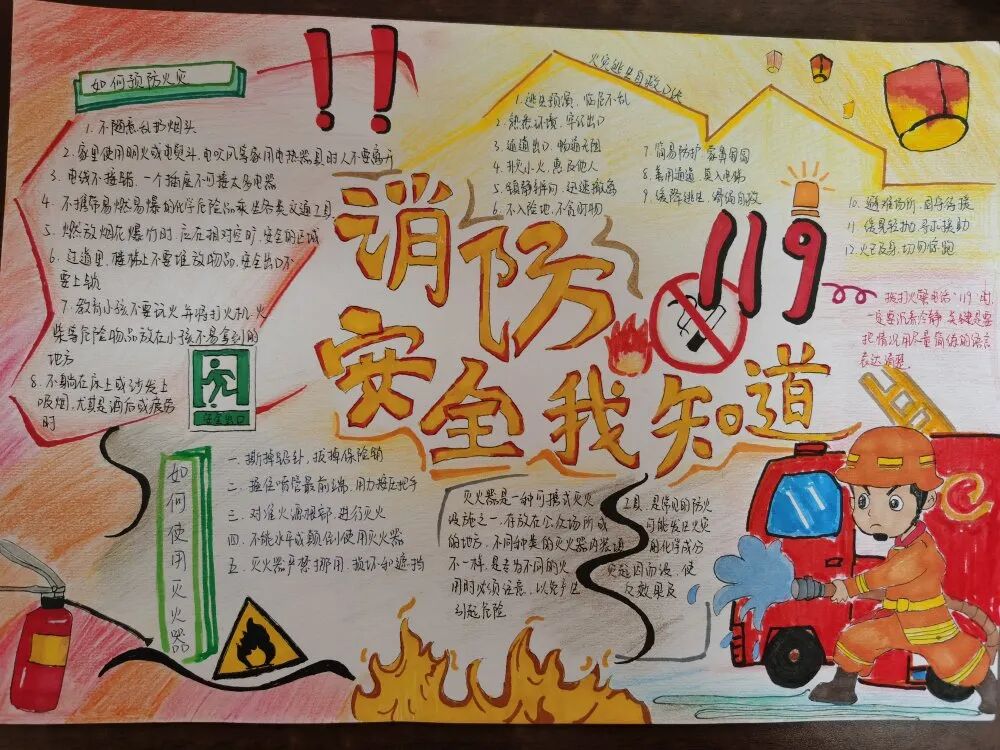 如何预防火灾
1. 不随意乱扔烟头
2. 家里使用明火或电熨斗、电吹风等家用电热器具时人不要离开
3. 电线不接错，一个插座不可接太多电器
4. 不携带易燃易爆的化学危险品乘坐各类交通工具
5. 燃放烟花爆竹时，应在相对空旷，安全的区域
6. 过道里，楼梯上不要堆放物品，安全出口不
要上锁
7. 教育小孩不要玩火并将打火机、火
柴等危险物品放在小孩不易拿到的
地方
8. 不躺在床上或沙发上
吸烟，尤其是酒后或疲劳
时
安全出口
!!
消防
安全我知道
119
火灾逃生自救口诀
1. 逃生预演，临危不乱
2. 熟悉环境，牢记出口
3. 通道出口，畅通无阻
4. 扑灭小火，惠及他人
5. 镇静辨向，迅速撤离
6. 不入险地，不贪财物
7. 简易防护，蒙鼻匍匐
8. 善用通道，莫入电梯
9. 缓降逃生，滑绳自救
10. 避难场所，固守待援
11. 缓晃轻抛，寻求援助
12. 火已及身，切勿惊跑
拨打火警电话"119"时，
一定要沉着冷静，关键是要
把情况用尽量简练的语言
表达清楚
如何使用灭火器
一、撕掉铅封，拔掉保险销
二、握住喷管最前端，用力按压把手
三、对准火源根部，进行灭火
四、不能水平或颠倒使用灭火器
五、灭火器严禁挪用，损坏和遮挡
灭火器是一种可携式灭火工具，是常见的防火
设施之一，存放在公众场所或可能发生火灾
的地方，不同种类的灭火器内装填的化学成分
不一样，是专为不同的火灾起因而设，使
用时必须注意，以免产生反效果及
引起危险